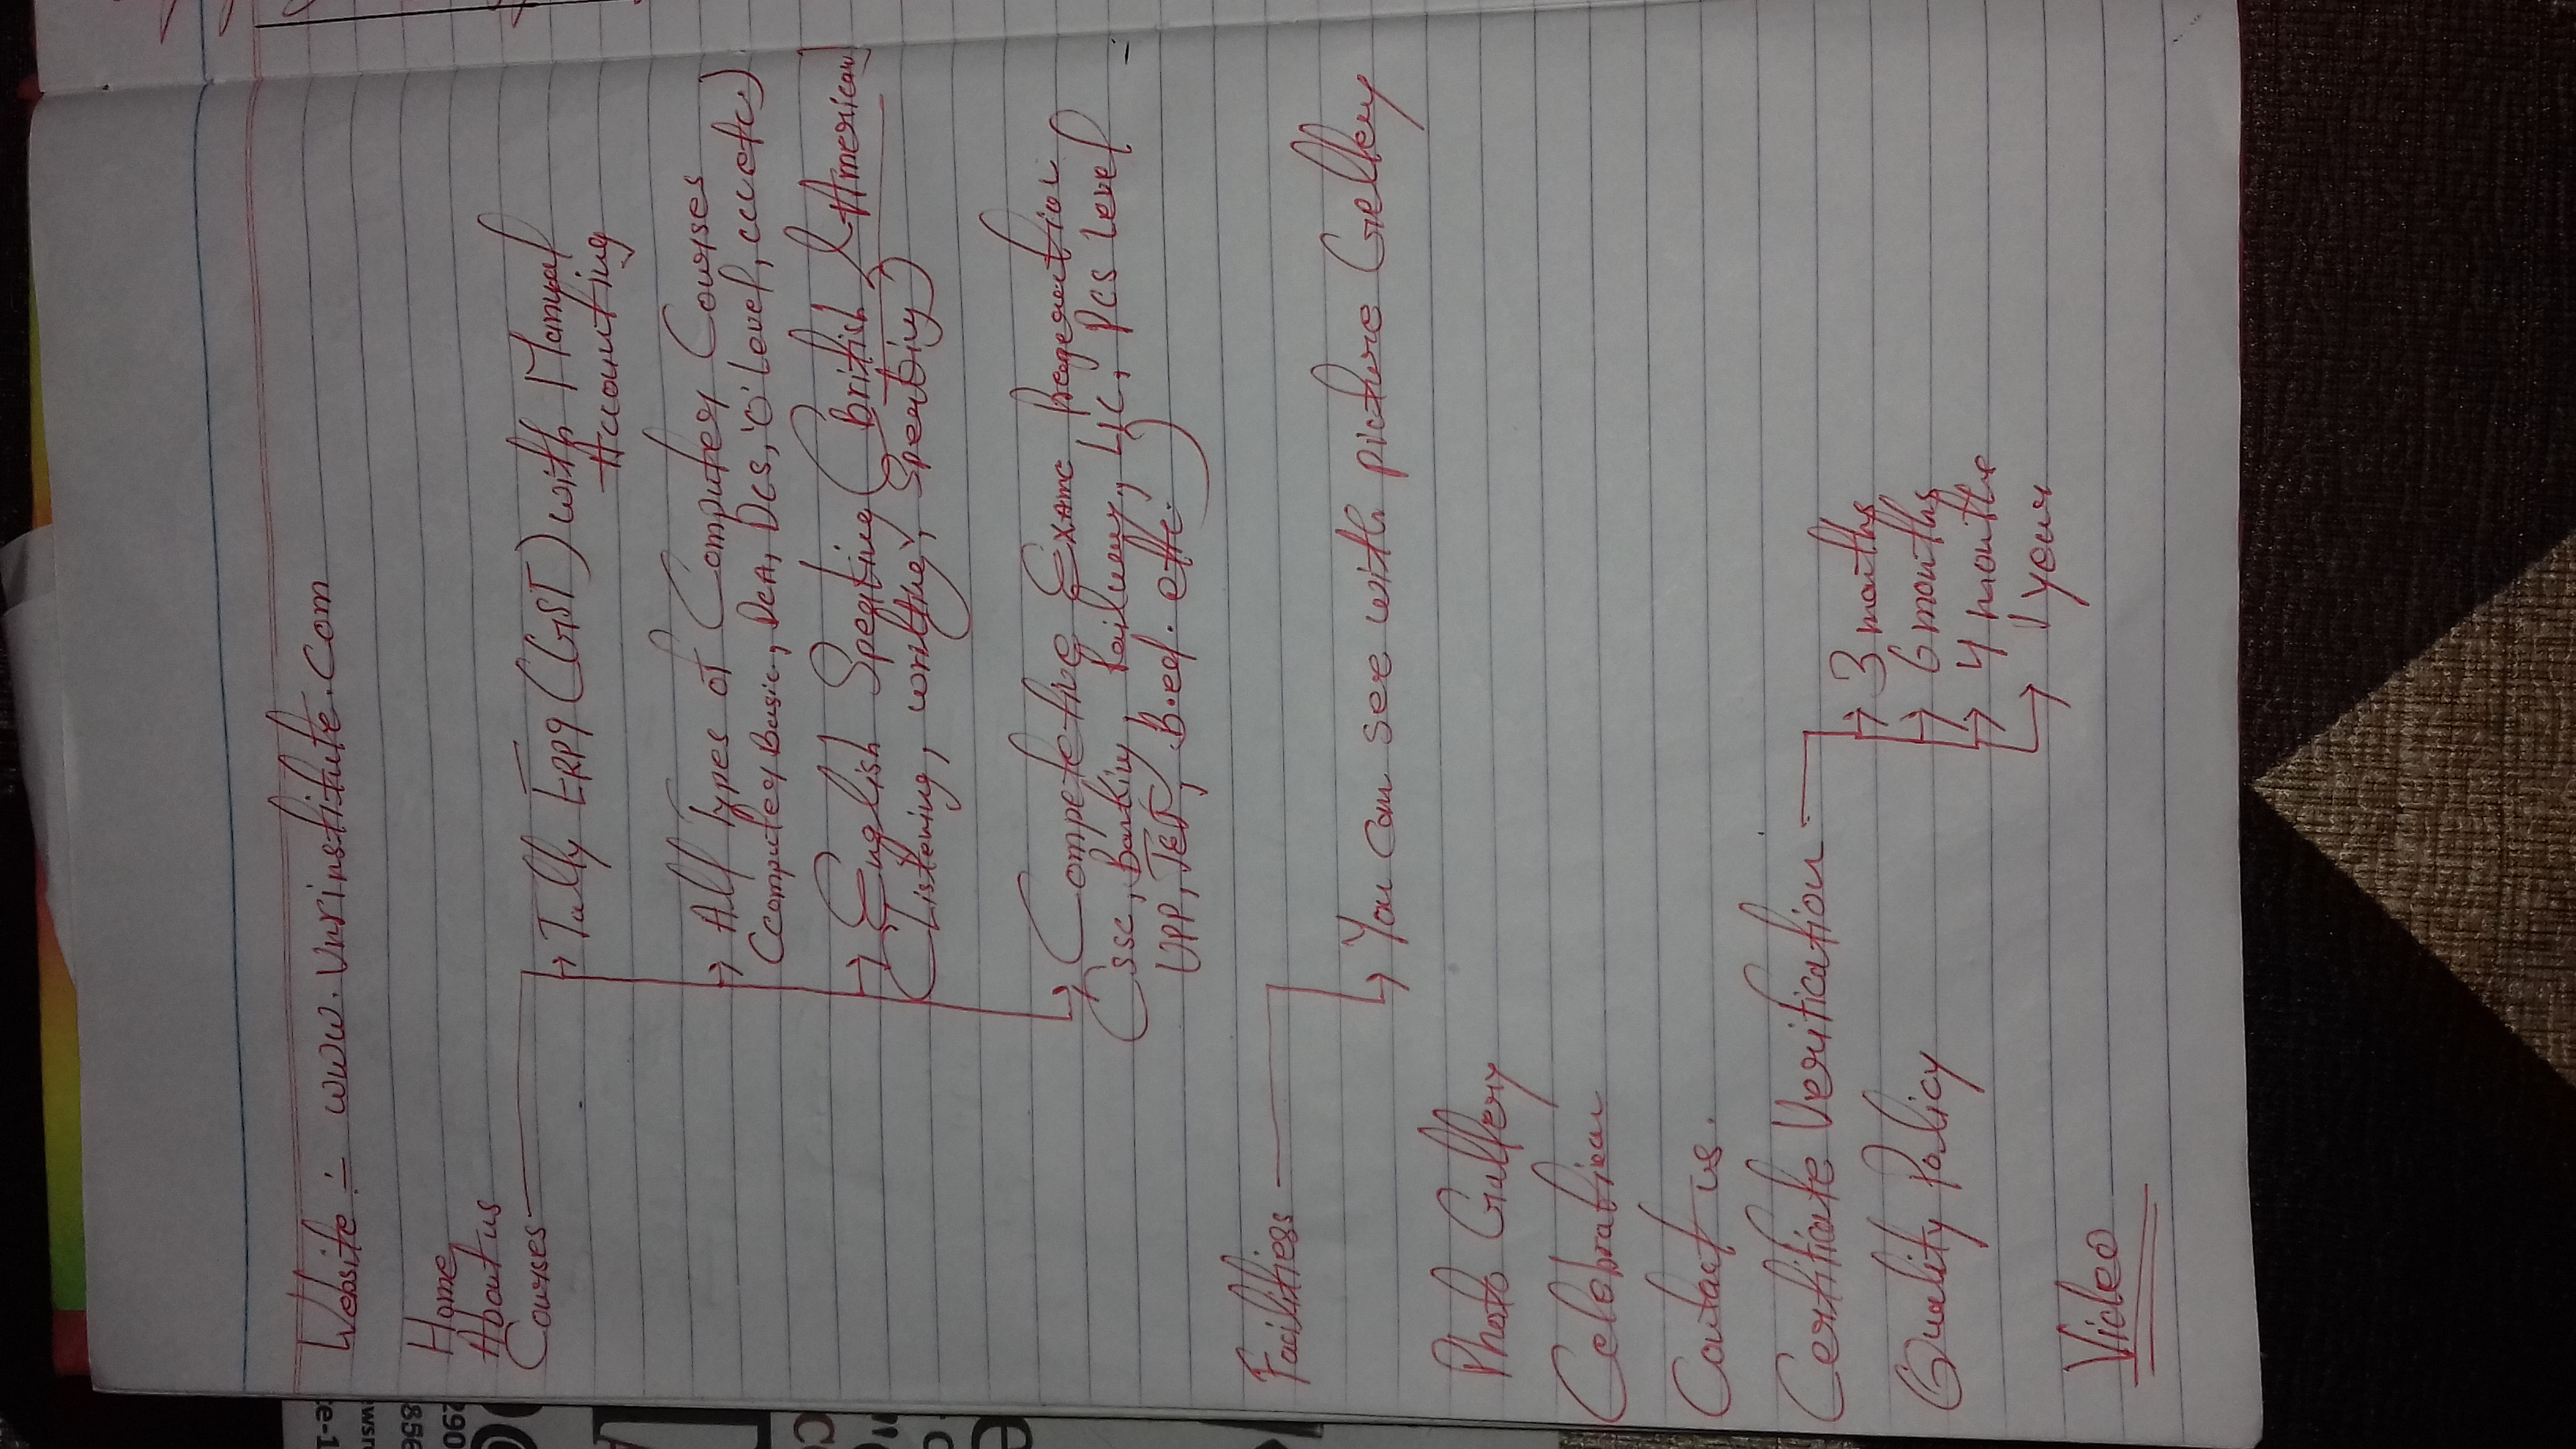 Website :- www.vnrinstitute.com
Home
About us
Courses
→ Tally ERP9 (GST) with Manual
Accounting
→ All Types of Computer Courses
(computer Basic, DCA, DCS, 'O' Level, ccc etc.)
→ English Speaking (British & American)
(Listening, writting, Speaking)
→ Competetive Exams Preperation
(SSC, Banking, Railway, LIC, PCS Level
UPP, TET, B.ed. etc.)
Facilitiess
→ You can see with picture Gellery
Photo Gallery
Celebration
Contact us.
Certificate Verification
→ 3 months
→ 6 months
→ 4 months
→ 1 year
Quality Policy
Video